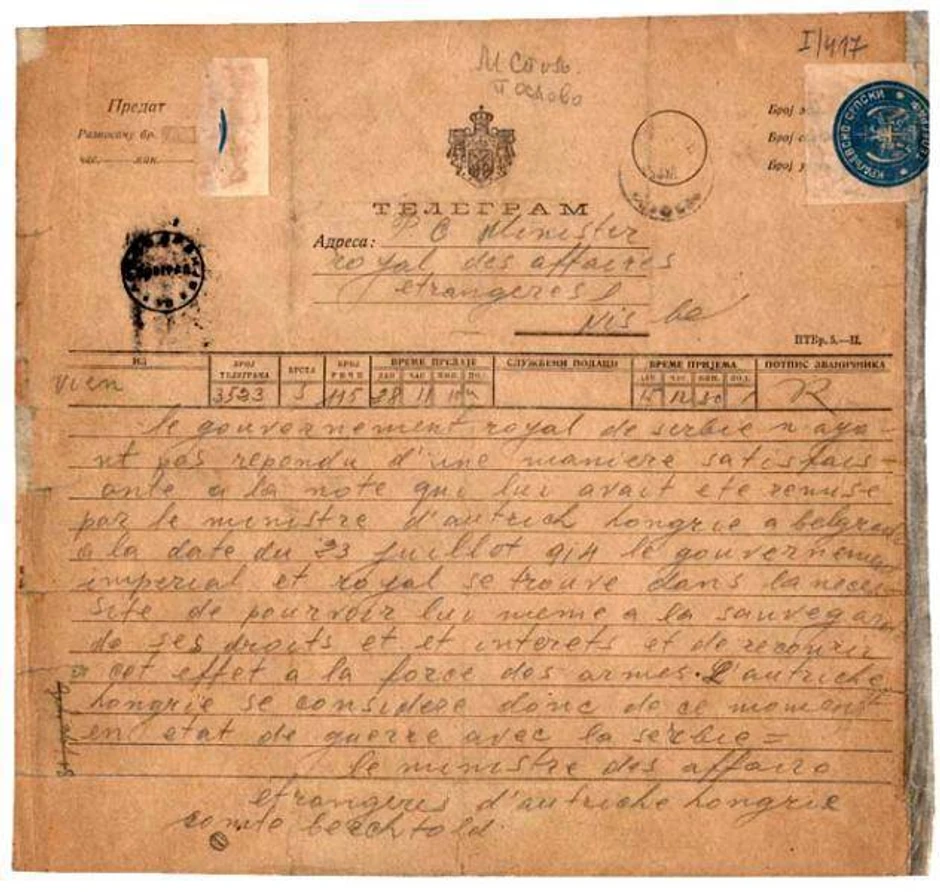 I/417
Предат
час. мин.
Број
Број
Број
КРАЉЕВСКО СРПСКИ
ТЕЛЕГРАМ
Адреса: Minister
royal des affaires
etrangeres
Nis
ПТБр. 5.—II.
ИЗ
БРОЈ ТЕЛЕГРАМА
ВРСТА
БРОЈ РЕЧИ
ВРЕМЕ ПРЕДАЈЕ
СЛУЖБЕНИ ПОДАЦИ
ВРЕМЕ ПРИЈЕМА
ПОТПИС ЗВАНИЧНИКА
ДАН ЧАС МИН. ПОД. ДАН ЧАС МИН. ПОД.
vien 3523 5 115 28 11 R
le gouvernement royal de serbie n aya-
nt pas repondu d'une maniere satisfais-
ante a la note qui lui avait ete remise
par le ministre d'autrich hongrie a belgrade
a la date du 23 juillot 914 le gouvernement
imperial et royal se trouve dans la neces-
site de pourvoir lui meme a la sauvegar
de ses droits et et interets et de recourir
a cet effet a la force des armes. L'autriche
hongrie se considere donc de ce moment
en etat de guerre avec la serbie =
le ministre des affaire
etrangeres d'autriche hongrie
comte berchtold